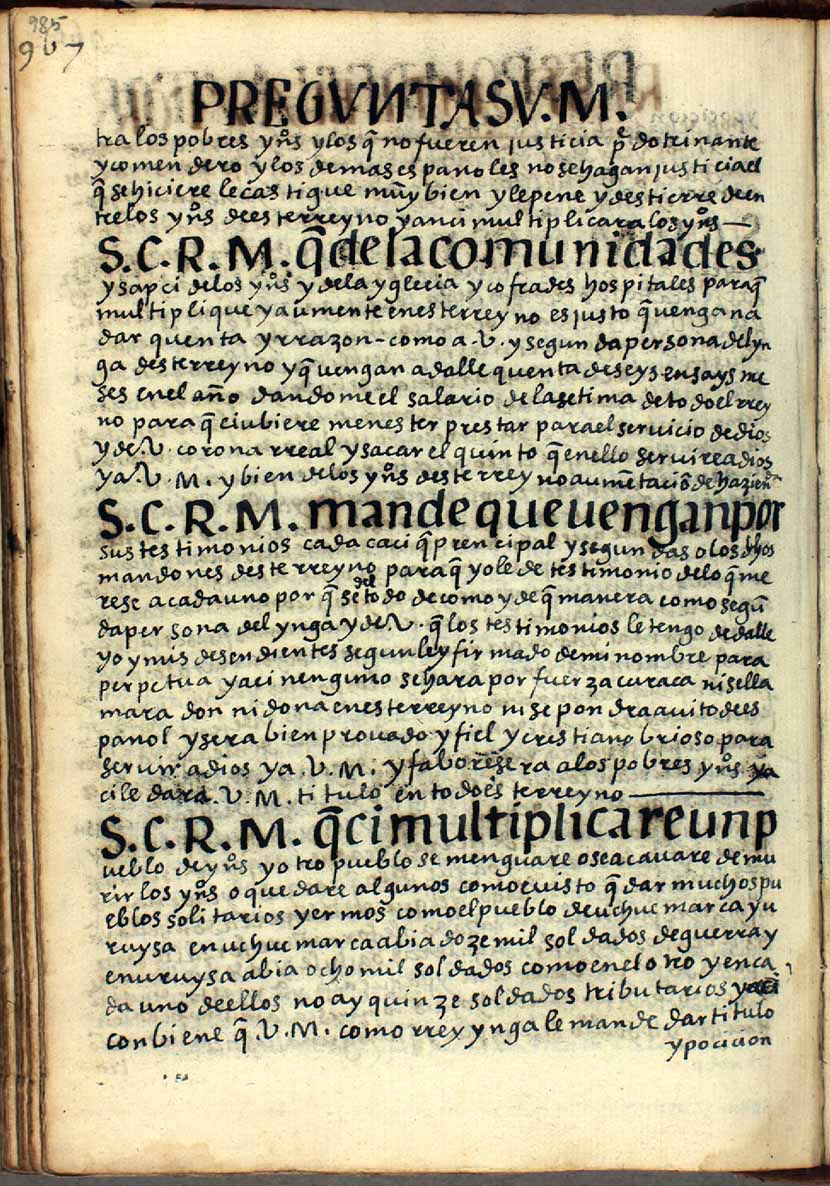 985
967
PREGVNTA SV. M.
tra los pobres yn̊s y los q̃ no fueren justicia p̱. dotrinante
y comendero y los demas espanoles no se hagan justicia el
q̃ se hiciere le castigue muy bien y le pene y destierre de en
tre los yn̊s deesterreyno y anci multiplicara los yn̊s —
S. C. R. M. q̃ de la comunidades
y sapci de los yn̊s y de la yglecia y cofrades hospitales para q̃
multiplique y aumente en esterreyno es justo q̃ uengan a
dar quenta y rrazon - como a. V. y segunda persona del yn
ga desterreyno y q̃ uengan a dalle quenta de seys en says me
ses en el año dandome el salario de la setima de todo el rrey
no para q̃ ci ubiere menester prestar para el servicio de dios
y de. V. corona rreal y sacar el quinto q̃ en ello servire a dios
y a. V. M. y bien de los yn̊s desterreyno aumẽtaciõ de hazienda
S. C. R. M. mande que uengan por
sus testimonios cada caciq̃ prencipal y segundas o los dhos
mandones desterreyno para q̃ yo le de testimonio de lo q̃ me
rese a cada uno por q̃ se del todo de como y de q̃ manera como segũ
da persona del ynga y de. V. q̃ los testimonios le tengo de dalle
yo y mis desendientes segun ley firmado de mi nombre para
perpetua y aci nenguno se hara por fuerza curaca ni se lla
mara don ni dona en esterreyno ni se pondra auito de es
panol y sera bien prouado y fiel y cristiano brioso para
servir a dios y a. V. M. y faborесera a los pobres yn̊s y a
ci le dara. V. M. titulo en todo esterreyno —
S. C. R. M. q̃ ci multiplicare un p
ueblo de yn̊s y otro pueblo se menguare o se acauare de mu
rir los yn̊s o quedare algunos como e uisto q̃ dar muchos pu
eblos solitarios yermos como el pueblo de uchuc marca y u
ruysa en uchuc marca abia doze mil soldados de guerra y
en uruysa abia ocho mil soldados como en el otro y en ca
da uno de ellos no ay quinze soldados tributarios y aci
conbiene q̃. V. M. como rrey ynga le mande dar titulo
y pocicion